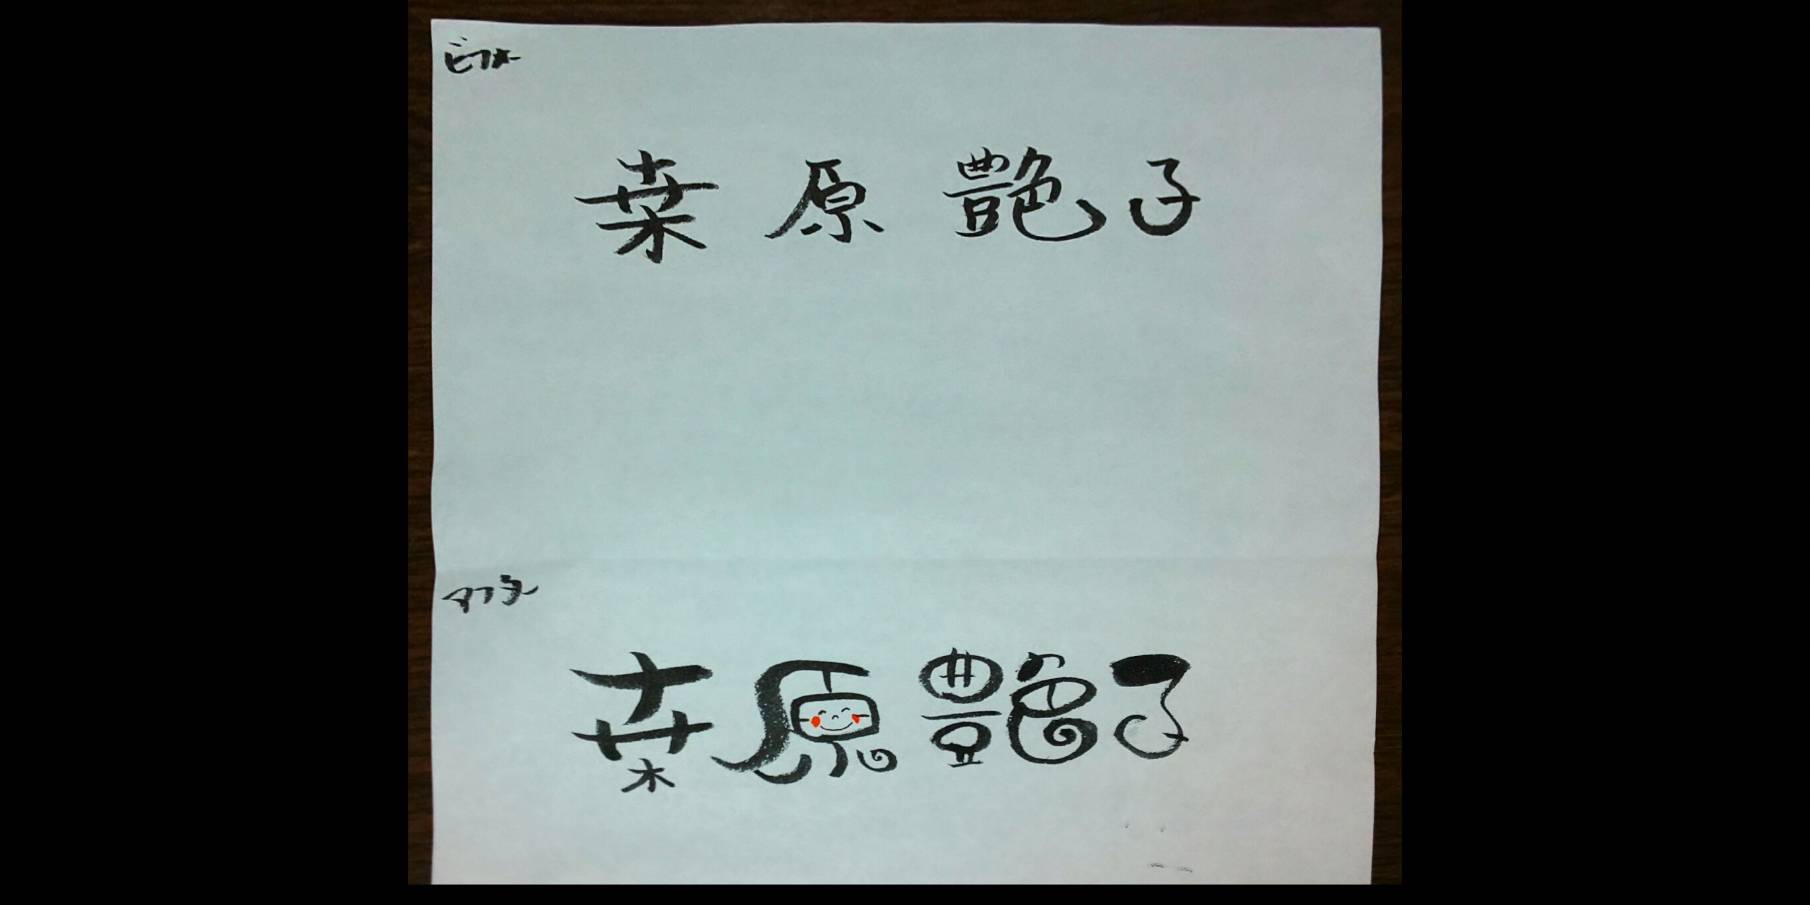 ビフォー
桒原艶子
アフター
桒原艶子